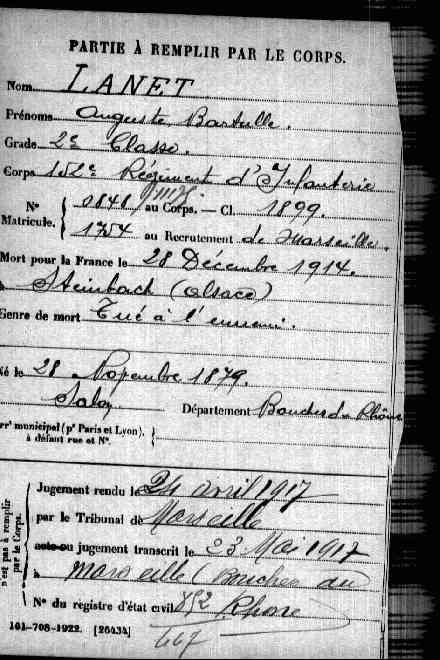 PARTIE À REMPLIR PAR LE CORPS.
Nom LANET
Prénoms Auguste Bartulle.
Grade 2e Classe.
Corps 152e Régiment d'Infanterie
N° Matricule. { 0848 / au Corps. — Cl. 1899.
1754 au Recrutement de Marseille.
Mort pour la France le 28 Décembre 1914.
à Steinbach (Alsace)
Genre de mort Tué à l'ennemi.
Né le 28 Novembre 1879.
Salon Département Bouches du Rhône
arrt municipal (pr Paris et Lyon), à défaut rue et N°. }
n'est pas à remplir par le Corps.
Jugement rendu le 24 avril 1917
par le Tribunal de Marseille
acte ou jugement transcrit le 23 Mai 1917
à Marseille (Bouches du
N° du registre d'état civil 892 Rhône)
101-708-1922. [26434]
667